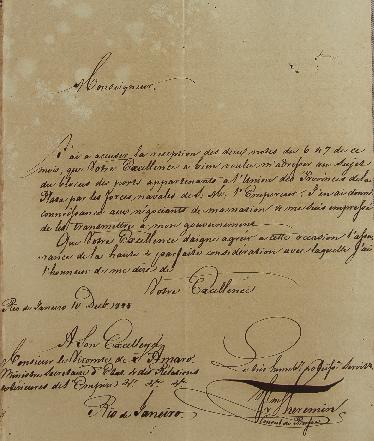 Monseigneur,
J'ai à accuser la réception des deux notes du 6 & 7 de ce
mois, que Votre Excellence a bien voulu m'adresser au sujet
du blocus des ports appartenants à l'Union des Provinces de la
Plata par les forces navales de S. M. l'Empereur. J'en ai donné
connoissance aux négociants de ma nation & me suis empressé
de les transmettre à mon gouvernement.
Que Votre Excellence daigne agréer à cette occasion l'assu-
rance de la haute & parfaite considération avec laquelle j'ai
l'honneur de me dire de
Votre Excellence
Rio de Janeiro 10 Decb.
A Son Excellence
Monsieur le Vicomte de St Amaro
Ministre Secretaire d'Etat & des Relations
extérieures de l'Empire &c. &c. &c.
Rio de Janeiro
le très humble
Theremin
Consul de Prusse